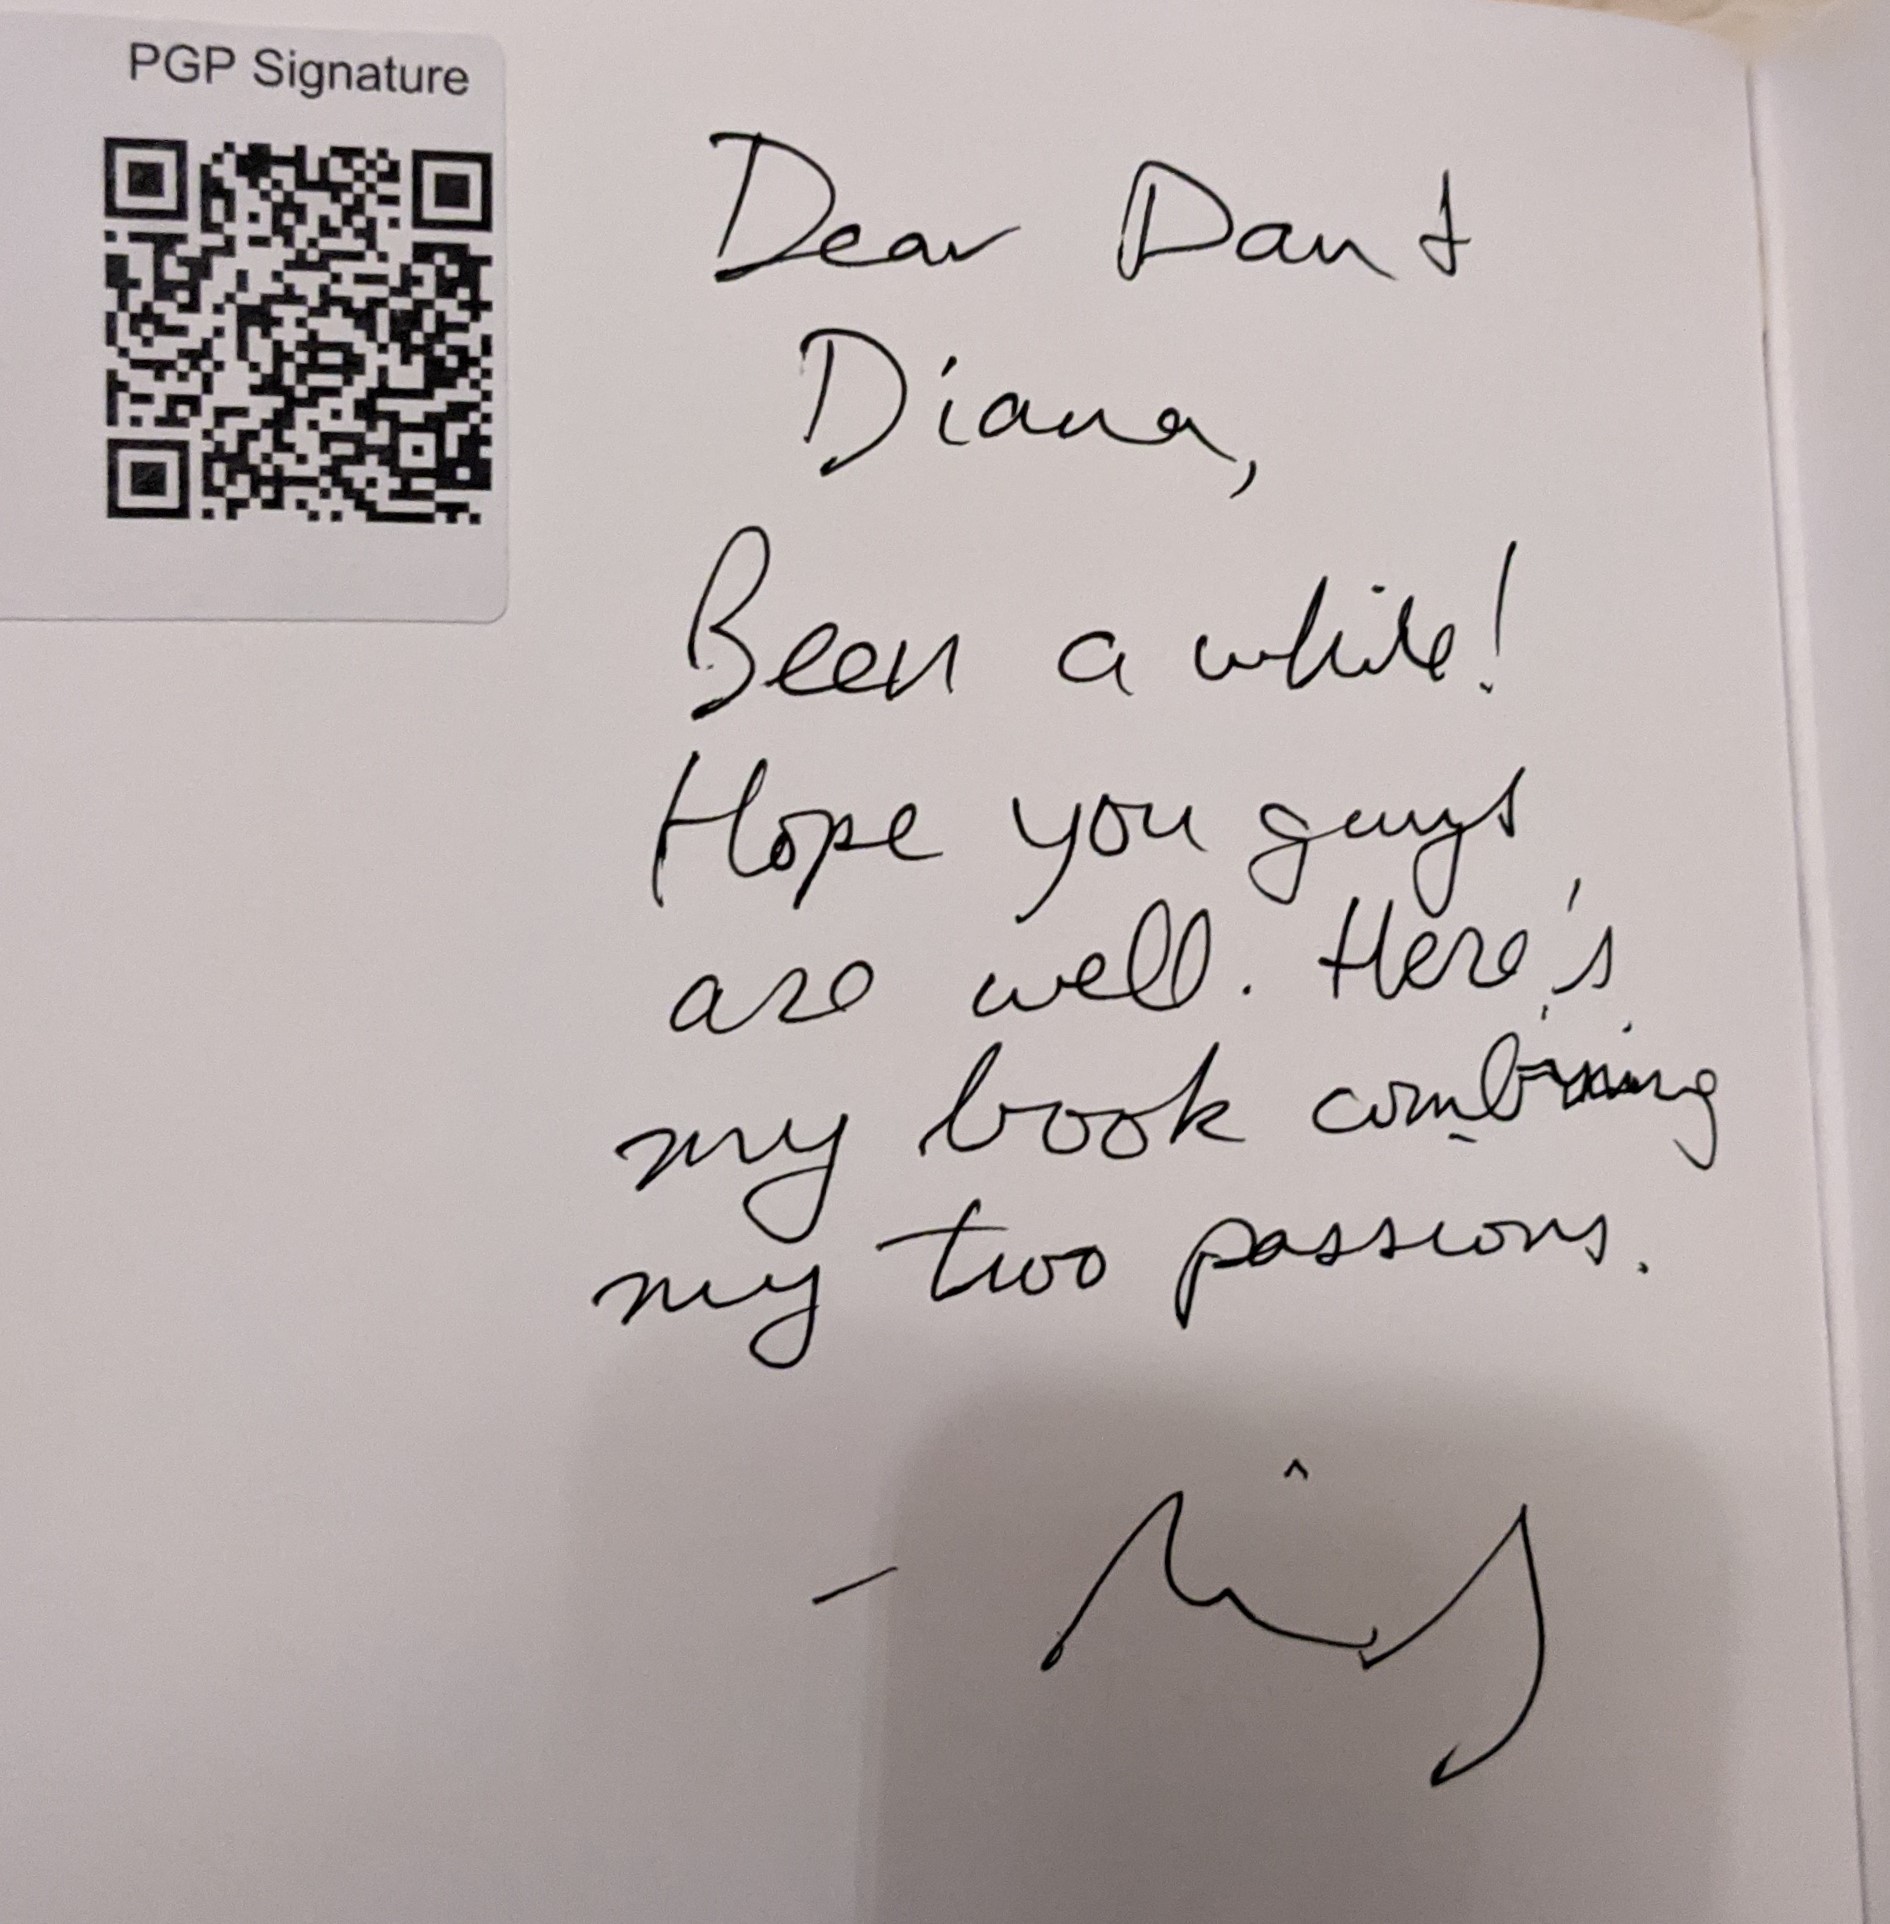 PGP Signature
Dear Dan &
Diana,
Been a while!
Hope you guys
are well. Here's
my book combining
my two passions.
-